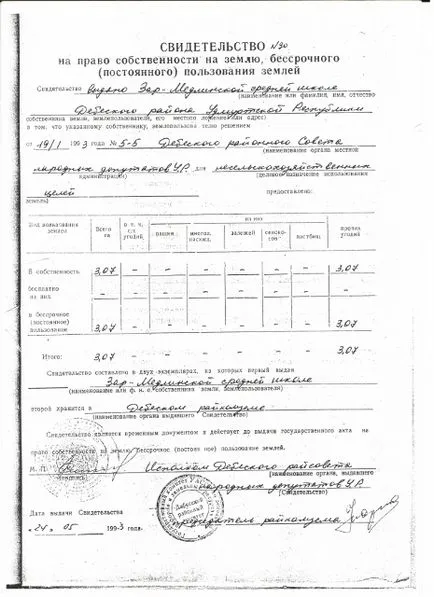 СВИДЕТЕЛЬСТВО №90
на право собственности на землю, бессрочного
(постоянного) пользования землей
Свидетельство выдано Зар-Медлинской средней школе
(наименование или фамилия, имя, отчество
Дебеского района Удмуртской Республики
собственника земли, землепользователя, его место
в том, что указанному собственнику, землепользователю решением
от 19/I 1993 года № 5-5 Дебеского районного Совета
(наименование органа местной
народных депутатов У.Р. для несельскохозяйственных
администрации) (целевое использование
целей предоставлено:
земель)
Вид пользования земель Всего га в т. ч. с/х угодий из них пашни многол. насажд. залежей сеноко- пастбищ прочих угодий
В собственность 3,07 - - - - - - 3,07
бесплатно - - - - - - - -
в бессрочное (постоянное) пользование 3,07 - - - - - - 3,07
Итого: 3,07 - - - - - - 3,07
Свидетельство составлено в двух экземплярах, из которых первый выдан
Зар-Медлинской средней школе
(наименование или ф. и. о. собственника земли, землепользователя)
второй хранится в Дебеском райкомземе
(наименование органа выдавшего Свидетельство)
Свидетельство является временным документом и действует до выдачи государственного акта на
право собственности на землю, бессрочное (постоянное) пользование землей.
М. П. Исполком Дебеского райсовета
(наименование органа, выдавшего
народных депутатов У.Р.
Свидетельство)
Дебесский
председатель райкомзема
Дата выдачи Свидетельства
«24» 05 1993 года.